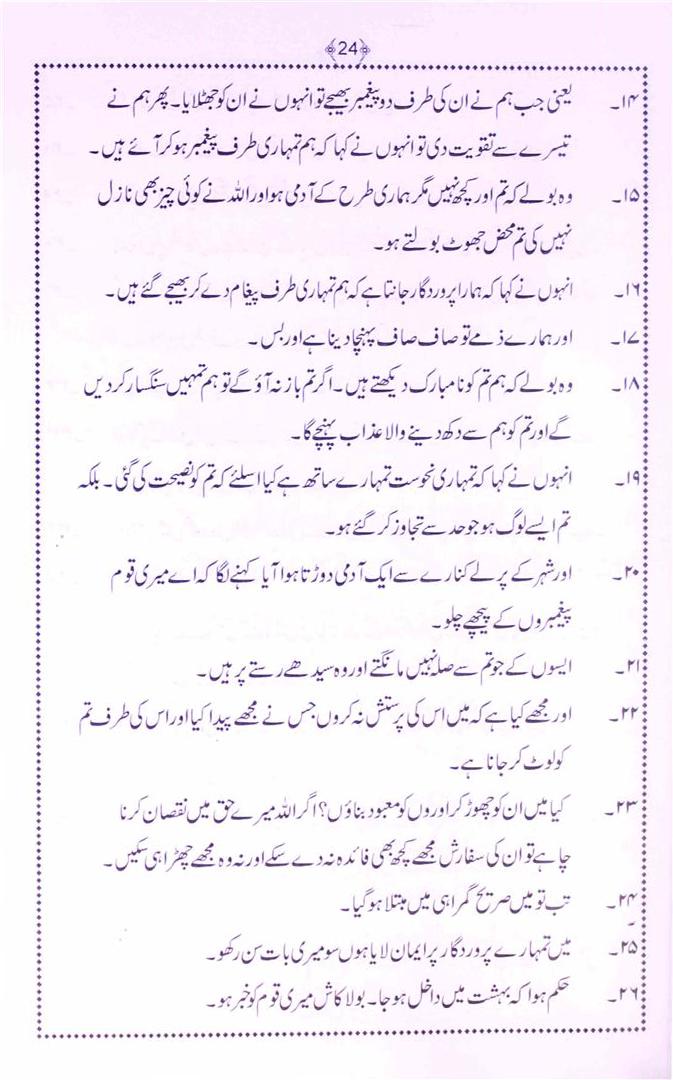 24
۱۴۔ یعنی جب ہم نے ان کی طرف دو پیغمبر بھیجے تو انہوں نے ان کو جھٹلایا۔ پھر ہم نے
تیسرے سے تقویت دی تو انہوں نے کہا کہ ہم تمہاری طرف پیغمبر ہو کر آئے ہیں۔
۱۵۔ وہ بولے کہ تم اور کچھ نہیں مگر ہماری طرح کے آدمی ہو اور اللہ نے کوئی چیز بھی نازل
نہیں کی تم محض جھوٹ بولتے ہو۔
۱۶۔ انہوں نے کہا کہ ہمارا پروردگار جانتا ہے کہ ہم تمہاری طرف پیغام دے کر بھیجے گئے ہیں۔
۱۷۔ اور ہمارے ذمے تو صاف صاف پہنچا دینا ہے اور بس۔
۱۸۔ وہ بولے کہ ہم تم کو نامبارک دیکھتے ہیں۔ اگر تم باز نہ آؤ گے تو ہم تمہیں سنگسار کر دیں
گے اور تم کو ہم سے دکھ دینے والا عذاب پہنچے گا۔
۱۹۔ انہوں نے کہا کہ تمہاری نحوست تمہارے ساتھ ہے کیا اسلئے کہ تم کو نصیحت کی گئی۔ بلکہ
تم ایسے لوگ ہو جو حد سے تجاوز کر گئے ہو۔
۲۰۔ اور شہر کے پرلے کنارے سے ایک آدمی دوڑتا ہوا آیا کہنے لگا کہ اے میری قوم
پیغمبروں کے پیچھے چلو۔
۲۱۔ ایسوں کے جو تم سے صلہ نہیں مانگتے اور وہ سیدھے رستے پر ہیں۔
۲۲۔ اور مجھے کیا ہے کہ میں اس کی پرستش نہ کروں جس نے مجھے پیدا کیا اور اس کی طرف تم
کو لوٹ کر جانا ہے۔
۲۳۔ کیا میں ان کو چھوڑ کر اوروں کو معبود بناؤں؟ اگر اللہ میرے حق میں نقصان کرنا
چاہے تو ان کی سفارش مجھے کچھ بھی فائدہ نہ دے سکے اور نہ وہ مجھے چھڑا ہی سکیں۔
۲۴۔ تب تو میں صریح گمراہی میں مبتلا ہو گیا۔
۲۵۔ میں تمہارے پروردگار پر ایمان لایا ہوں سو میری بات سن رکھو۔
۲۶۔ حکم ہوا کہ بہشت میں داخل ہو جا۔ بولا کاش میری قوم کو خبر ہو۔